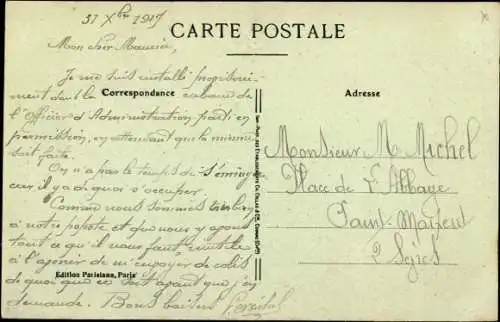 31 Xbre 1917
CARTE POSTALE
Mon cher Maurice,
Je me suis installé provisoirement
dans la cabane de
Correspondance
Adresse
l'Officier d'Administration parti en
permission, en attendant que la mienne
soit faite.
On n'a pas le temps de s'ennuyer
car il y a de quoi s'occuper.
Comme nous sommes très bien
à notre popote et que nous y avons
tout ce qu'il nous faut inutile
à l'avenir de m'envoyer de colis
de quoi que ce soit avant que j'en
demande. Bons baisers
Monsieur M. Michel
Place de l'Abbaye
Saint-Maixent
2 Sèvres
Edition Parisiana, Paris